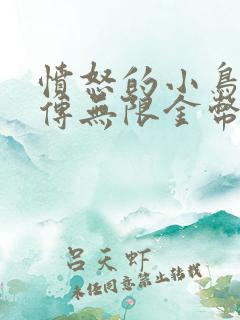 憤怒的小鳥
傳無限金幣
呂天虾
未经同意禁止转载